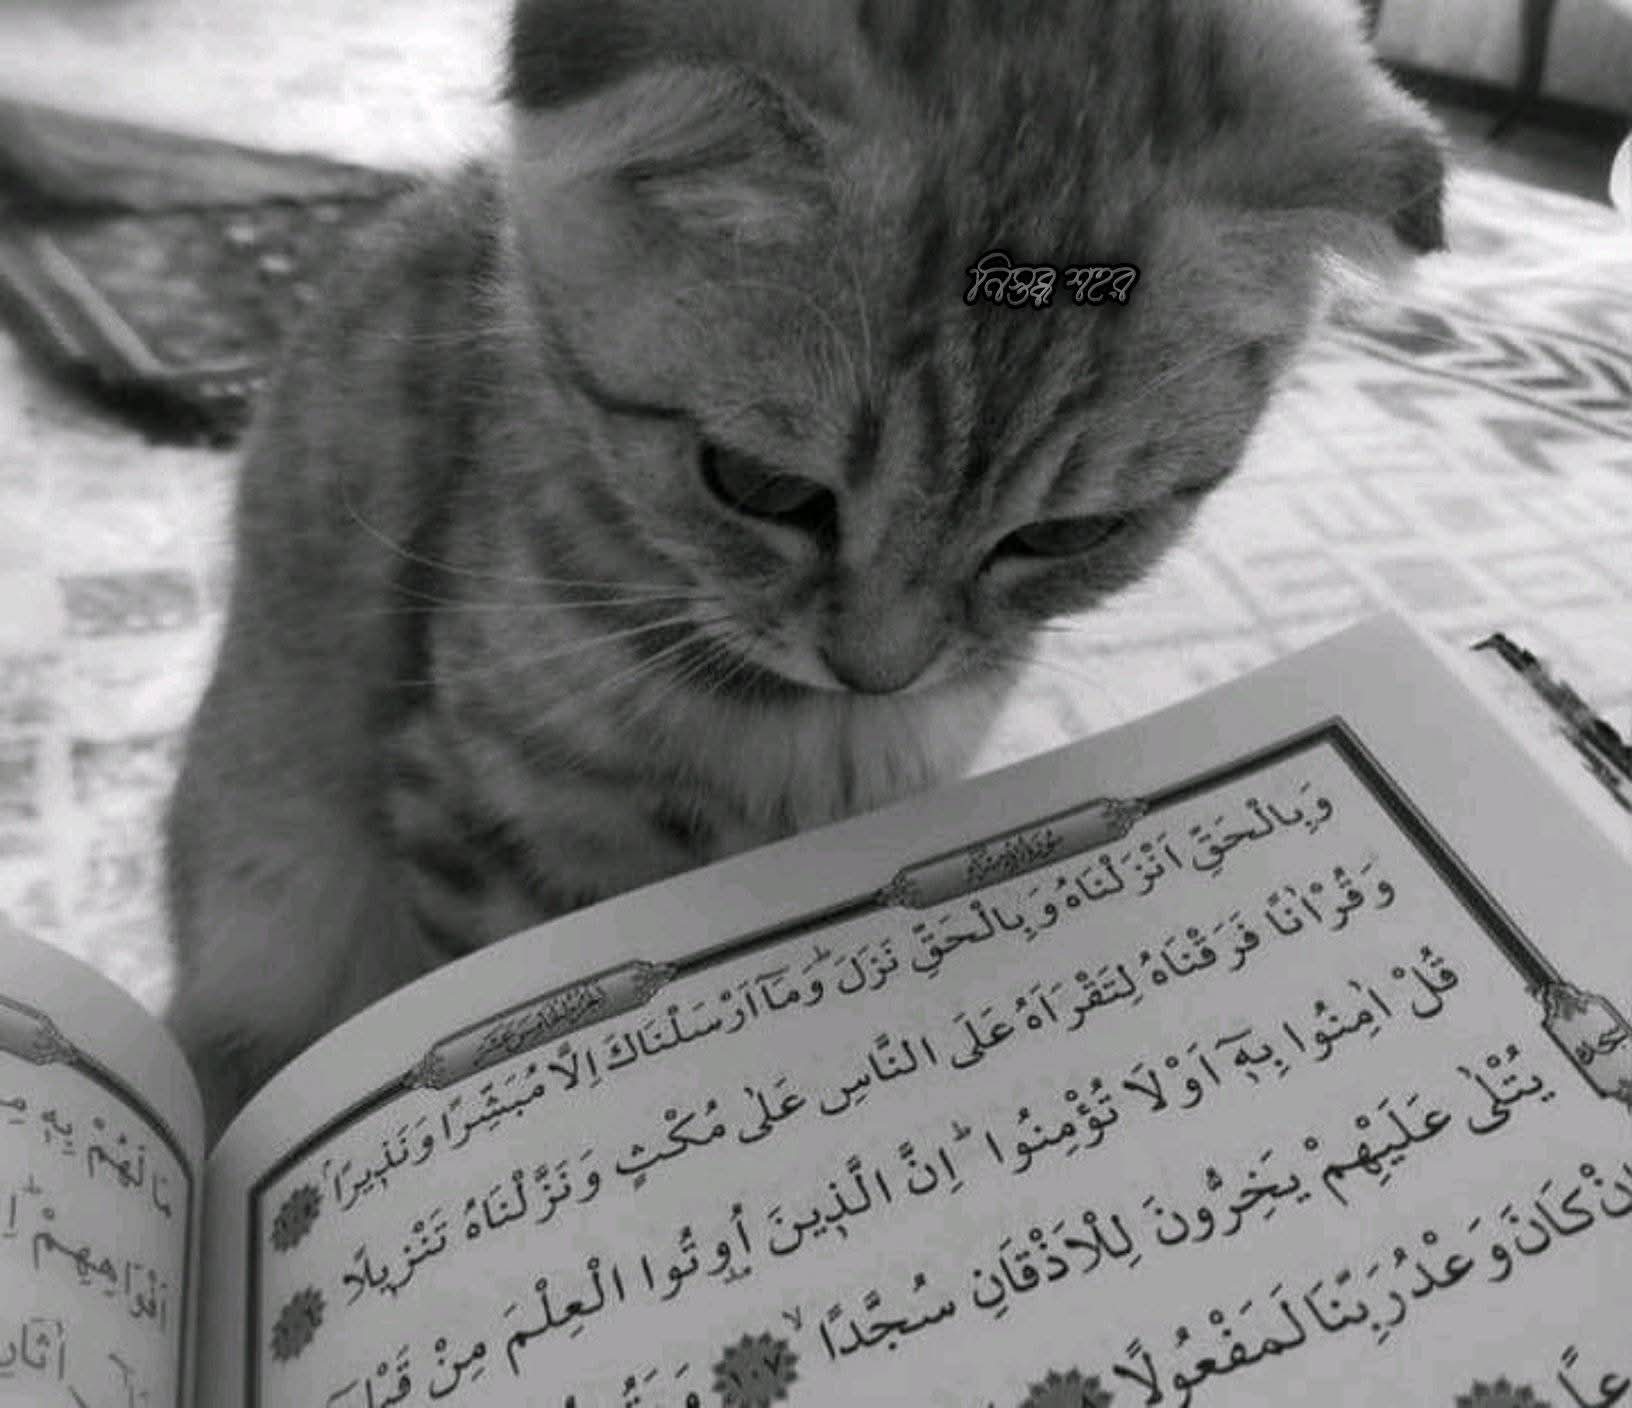 নিস্তব্ধ শহর
وَبِالْحَقِّ اَنْزَلْنَاهُ وَبِالْحَقِّ نَزَلَ وَمَٓا اَرْسَلْنَاكَ اِلَّا مُبَشِّرًا وَنَذ۪يرًا
وَقُرْاٰنًا فَرَقْنَاهُ لِتَقْرَاَهُ عَلَى النَّاسِ عَلٰى مُكْثٍ وَنَزَّلْنَاهُ تَنْز۪يلًا
قُلْ اٰمِنُوا بِه۪ٓ اَوْ لَا تُؤْمِنُوا اِنَّ الَّذ۪ينَ اُو۫تُوا الْعِلْمَ مِنْ قَبْلِه۪ٓ
يُتْلٰى عَلَيْهِمْ يَخِرُّونَ لِلْاَذْقَانِ سُجَّدًا ١٠٧
اِنْ كَانَ وَعْدُ رَبِّنَا لَمَفْعُولًا
مَا لَهُمْ بِه۪
اَفْوَاهِهِمْ